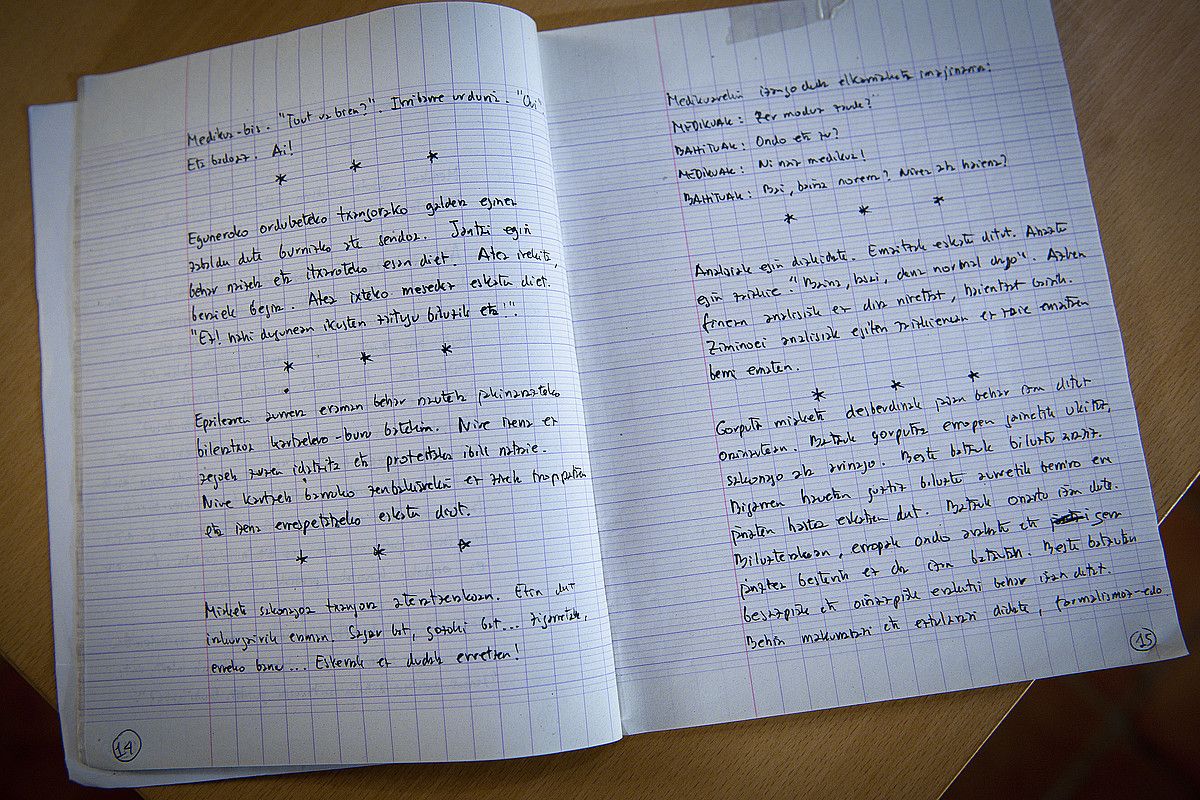 Medikua-bis. "Tout va bien?". Irribarre urduri. "Oui".
Eta badoaz. Ai!
* * *
Eguneroko ordubeteko txangorako galdera eginez
zabaldu dute burnizko ate sendoa. Jantzi egin
behar naizela eta itxaroteko esan diet. Atea irekita,
beraiek begira. Atea ixteko mesedez eskatu diet.
"Ez! nahi dugunean ikusten zaitugu biluzik eta!".
* * *
Epailearen aurrera eraman behar nautela jakinarazteko
bileratxoa kartzelero-buru batekin. Nire izena ez
zegoela zuzen idatzita eta protestaka ibili natzaie.
Nire kartzela barruko zenbakiarekin ez zarela tronpatzen
eta izena errespetatzeko eskatu diot.
* * *
Miaketa sakonagoa txangora ateratzerakoan. Ezin dut
intxaurrik eraman. Sagar bat, goxoki bat... zigarretak,
erreko banu... Eskerrak ez dudala erretzen!
14
Medikuarekin izango dudan elkarrizketa imajinarioa:
MEDIKUAK: Zer moduz zaude?
BAHITUAK: Ondo eta zu?
MEDIKUAK: Ni naiz medikua!
BAHITUAK: Bai, baina norena? Nirea ala haiena?
* * *
Analisiak egin dizkidate. Emaitzak eskatu ditut. Barre
egin zaizkie: "Baina, lasai, dena normal dago". Azken
finean analisiak ez dira niretzat, haientzat baizik.
Ziminoei analisiak egiten zaizkienean ez zaie ematen
berri ematen.
* * *
Gorputz miaketa desberdinak jasan behar izan ditut
oraintxean. Batzuk gorputza erropen gainetik ukituz,
sakonago ala arinago. Beste batzuk biluztu araziz.
Bigarren hauetan guztiz biluztu aurretik berriro ere
janzten hastea eskatzen dut. Batzuk onartu izan dute.
Biluzterakoan, erropak ondo arakatu eta igera
janztea besterik ez da izan batzutan. Beste batzutan
besazpiak eta oinazpiak erakutsi behar izan ditut.
Behin makurarazi eta eztularazi didate, formalismoz-edo
15